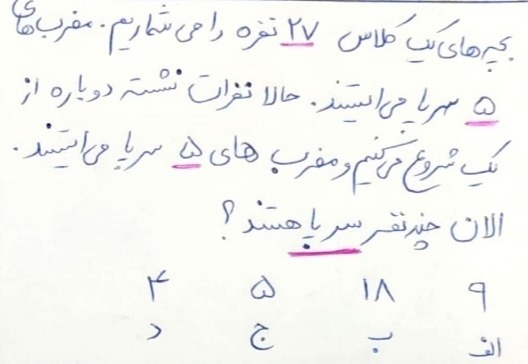 بچه های یک کلاس ۲۷ نفره را می شماریم. مضرب های
۵ سرپا می ایستند. حالا نفرات نشسته دوباره از
یک شروع می کنیم و مضرب های ۵ سرپا می ایستند.
الان چند نفر سرپا هستند؟
۹ ۱۸ ۵ ۴
الف ب ج د